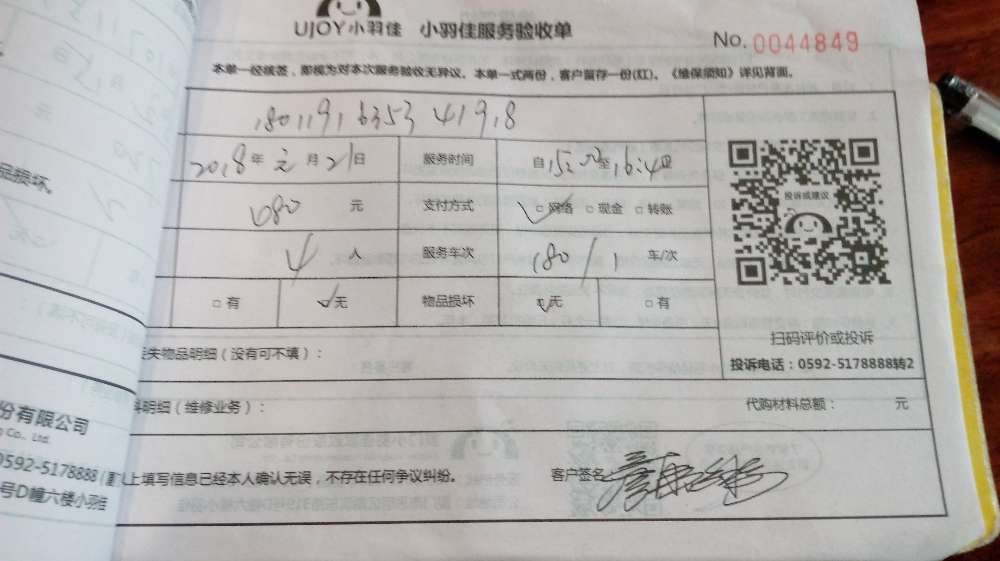 UJOY小羽佳 小羽佳服务验收单
No. 0044849
本单一经核签，即视为对本次服务验收无异议。本单一式两份，客户留存一份(红)。《维保须知》详见背面。
18011916353 4198
2018年 元 月 21 日 服务时间 自 15:00 至 16:40
680 元 支付方式 □网络 □现金 □转账
4 人 服务车次 180/1 车/次
□有 □无 物品损坏 □无 □有
投诉或建议
扫码评价或投诉
投诉电话：0592-5178888转2
失物品明细（没有可不填）：
明细（维修业务）： 代购材料总额： 元
上填写信息已经本人确认无误，不存在任何争议纠纷。 客户签名
品损坏。
份有限公司
Co., Ltd.
0592-5178888
号D幢六楼小羽佳